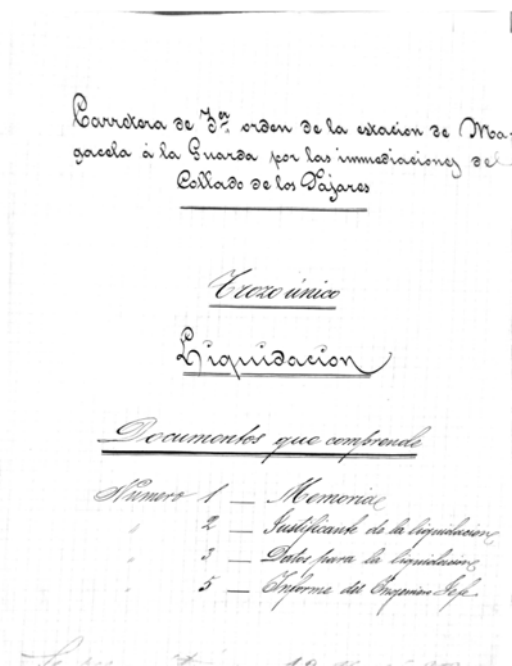 Carretera de 3er orden de la estacion de Ma-
gacela á la Guarda por las inmediaciones del
Collado de los Pájares
Trozo único
Liquidacion
Documentos que comprende
Número 1 — Memoria
" 2 — Justificante de la liquidacion
" 3 — Datos para la liquidacion
" 5 — Informe del Ingeniero Jefe